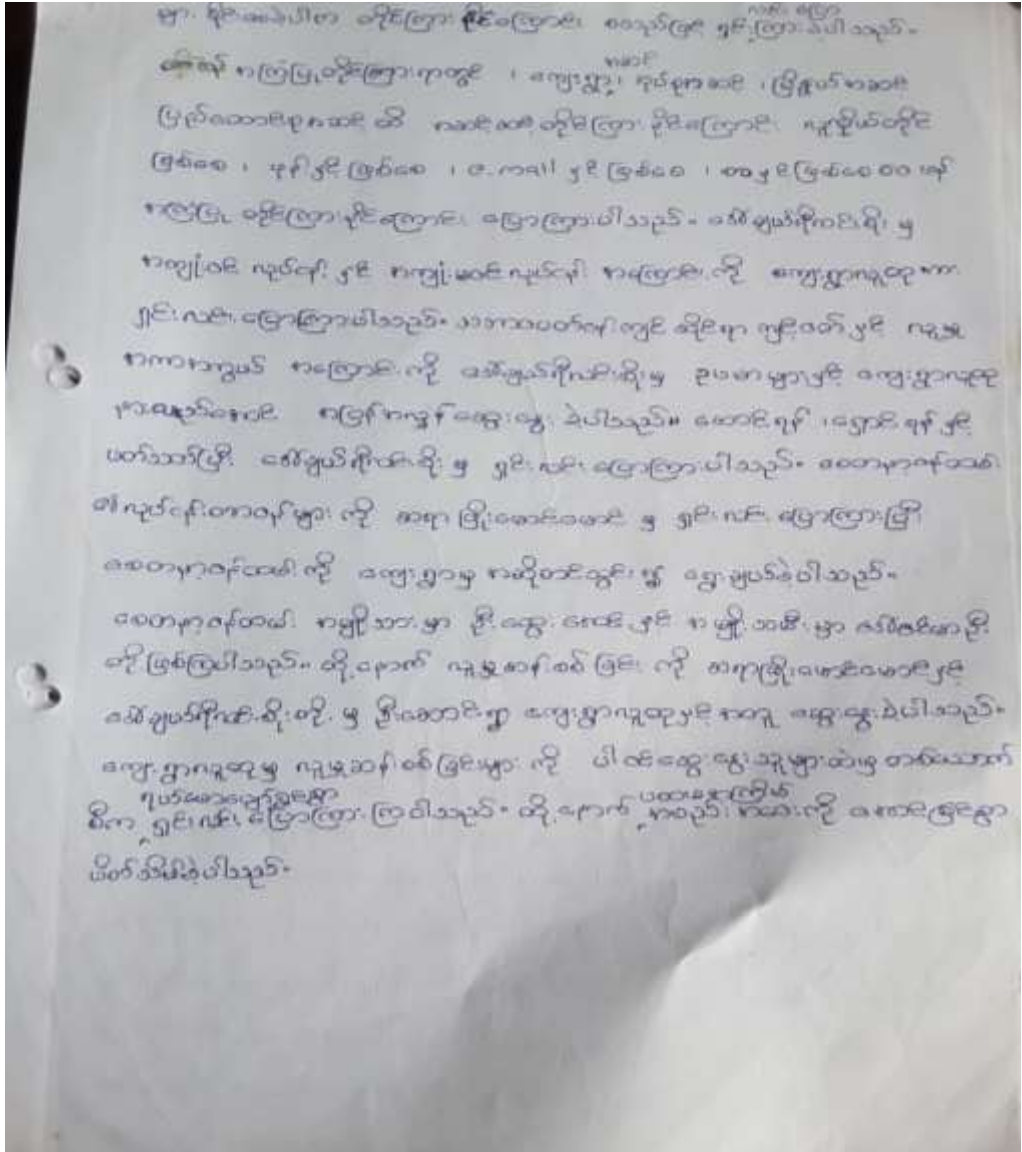 လင်း ပြော
မှာ ရှိသေးခဲ့ပါက တိုင်ကြားနိုင်ကြောင်း စသည်ဖြင့် ရှင်းကြားခဲ့ပါသည်။
အဆင့်
အကြံပြုတိုင်ကြားရာတွင် ၊ ကျေးရွာ၊ အုပ်စုအဆင့် ၊ မြို့နယ်အဆင့်
ပြည်ထောင်စုအဆင့် ထိ အဆင့်ဆင့်တိုင်ကြားနိုင်ကြောင်း လူကိုယ်တိုင်
ဖြစ်စေ ၊ ဖုန်းနှင့်ဖြစ်စေ ၊ e.mail နှင့်ဖြစ်စေ ၊ စာနှင့်ဖြစ်စေ
အကြံပြု တိုင်ကြားနိုင်ကြောင်း ပြောကြားပါသည်။ ဒေါ်ချယ်ရီလင်းစိုး မှ
အကျုံးဝင် လုပ်ငန်း နှင့် အကျုံးမဝင်လုပ်ငန်း အကြောင်း ကို ကျေးရွာလူထုအား
ရှင်းလင်းပြောကြားပါသည်။ သဘာဝပတ်ဝန်းကျင် ဆိုင်ရာ ကျင့်ဝတ်နှင့် လူမှု
အကာအကွယ် အကြောင်း ကို ဒေါ်ချယ်ရီလင်းစိုးမှ ဥပမာများနှင့် ကျေးရွာလူထု
နားလည်အောင် အပြန်အလှန် ဆွေးနွေးခဲ့ပါသည်။ ဆောင်ရန် ၊ ရှောင်ရန် နှင့်
ပတ်သတ်ပြီး ဒေါ်ချယ်ရီလင်းစိုး မှ ရှင်းလင်းပြောကြားပါသည်။ စေတနာ့ဝန်ထမ်း
၏ လုပ်ငန်းတာဝန်များ ကို ဆရာဖြိုးမောင်မောင် မှ ရှင်းလင်းပြောကြားပြီး
စေတနာ့ဝန်ထမ်းကို ကျေးရွာမှ အဆိုတင်သွင်း၍ ရွေးချယ်ခဲ့ပါသည်။
စေတနာ့ဝန်ထမ်း အမျိုးသားမှာ ဦးထွေးအောင် နှင့် အမျိုးသမီးမှာ
တို့ဖြစ်ကြပါသည်။ ထို့နောက် လူမှုဆန်းစစ်ခြင်း ကို ဆရာဖြိုးမောင်မောင်နှင့်
ဒေါ်ချယ်ရီလင်းစိုးတို့ မှ ဦးဆောင်၍ ကျေးရွာလူထုနှင့်အတူ ဆွေးနွေးခဲ့ပါသည်။
ကျေးရွာလူထုမှ လူမှုဆန်းစစ်ခြင်းများ ကို ပါဝင်ဆွေးနွေးသူများထဲမှ တစ်ယောက်
ရယ်မောပျော်ရွှင်စွာ ပထမအကြိမ်
စီက ရှင်းလင်းပြောကြားကြပါသည်။ ထို့နောက် အစည်းအဝေးကို အောင်မြင်စွာ
ပိတ်သိမ်းခဲ့ပါသည်။